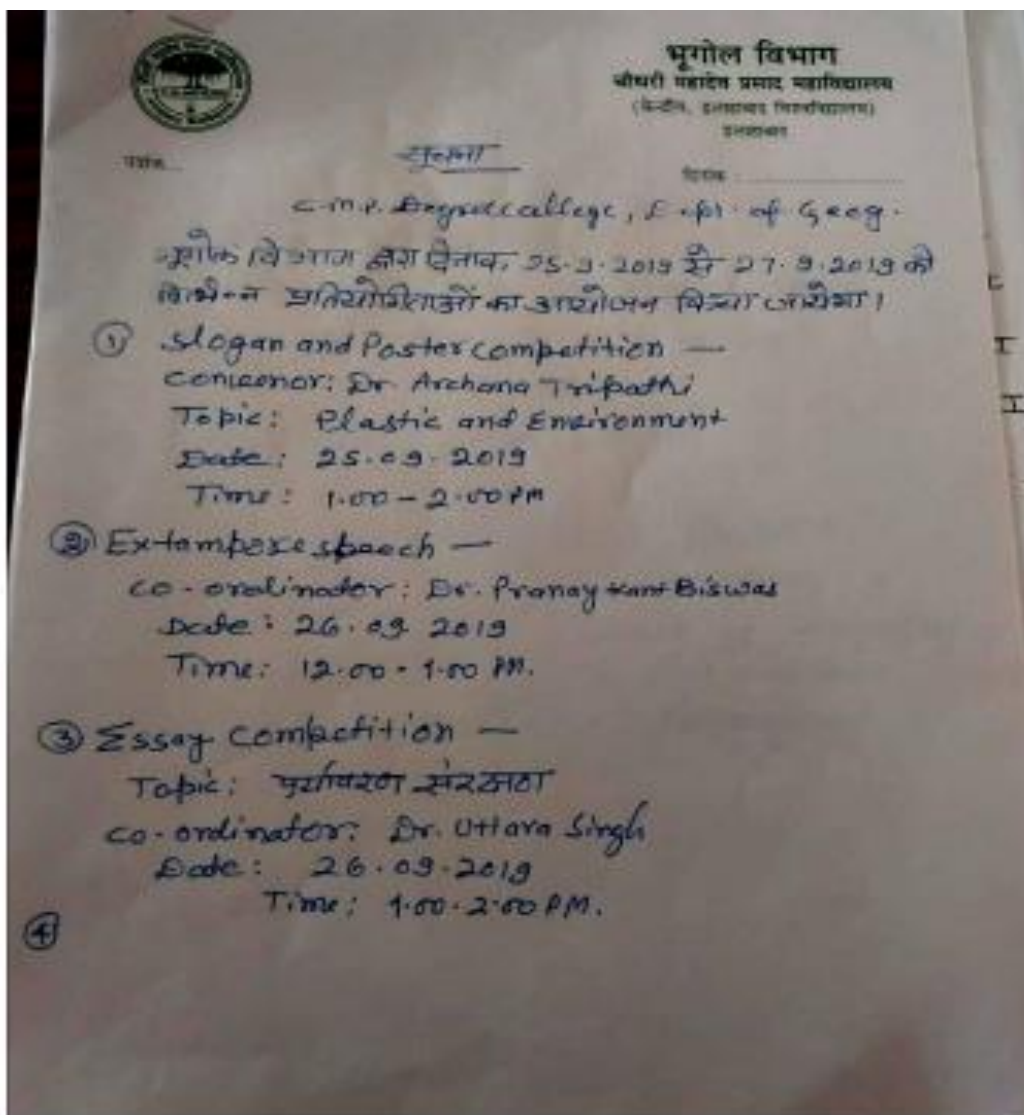 भूगोल विभाग
चौधरी महादेव प्रसाद महाविद्यालय
(केन्द्रीय, इलाहाबाद विश्वविद्यालय)
इलाहाबाद
पत्रांक...
सूचना
दिनांक :
C.M.P. Degree College, Dept. of Geog.
भूगोल विभाग द्वारा दिनांक 25.9.2019 से 27.9.2019 को
विभिन्न प्रतियोगिताओं का आयोजन किया जायेगा।
① Slogan and Poster competition —
Convenor: Dr Archana Tripathi
Topic: Plastic and Environment
Date: 25.09.2019
Time: 1.00 – 2.00 PM
② Extampore speech —
Co-ordinator: Dr. Pranay Kant Biswas
Date: 26.09 2019
Time: 12.00 - 1.00 PM.
③ Essay competition —
Topic: पर्यावरण संरक्षण
Co-ordinator: Dr. Uttara Singh
Date: 26.09.2019
Time: 1.00-2.00 PM.
④